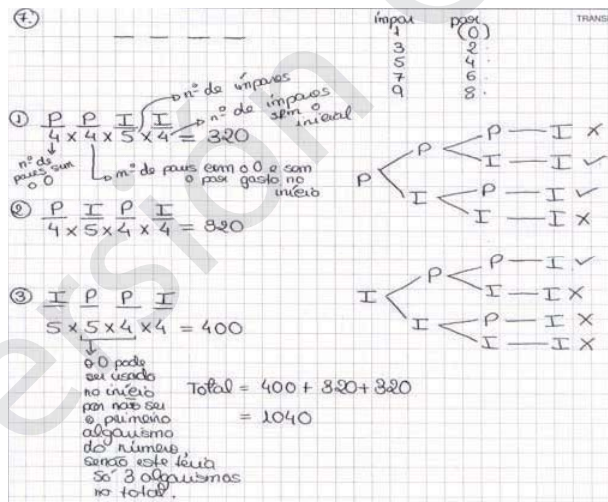 7.
ímpar par
1 (0)
3 2
5 4
7 6
9 8
TRANS
① P P I I
4 x 4 x 5 x 4 = 320
nº de ímpares
nº de ímpares sem o inicial
nº de pares sem o 0
nº de pares com o 0 e sem o par gasto no início
② P I P I
4 x 5 x 4 x 4 = 320
③ I P P I
5 x 5 x 4 x 4 = 400
o 0 pode
ser usado
no início
por não ser
o primeiro
algarismo
do número,
senão este teria
só 3 algarismos
no total.
Total = 400 + 320 + 320
= 1040
P
P
P — I X
I — I ✓
I
P — I ✓
I — I X
I
P
P — I ✓
I — I X
I
P — I X
I — I X
ersión